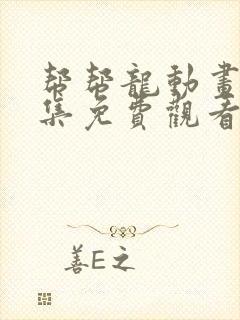 幫幫龍動畫
集免費觀看
善E之